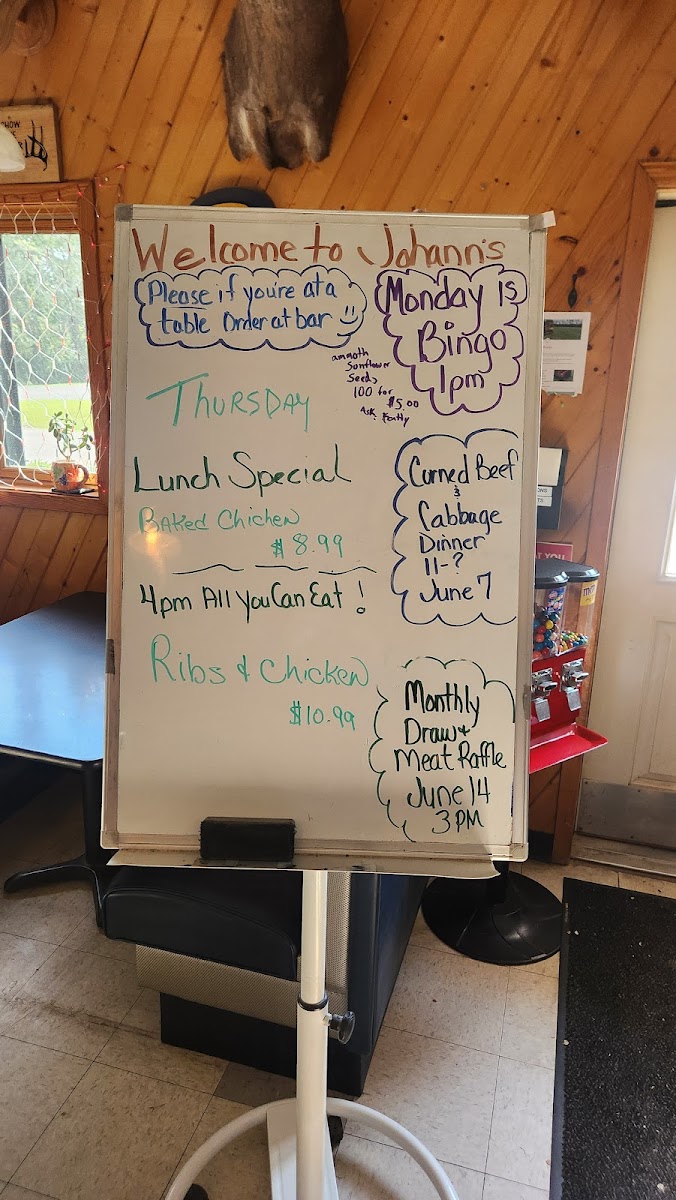 Welcome to Johann's
Please if you're at a
table Order at bar
Monday is
Bingo
1pm
ammoth
Sunflower
Seeds
100 for
$5.00
Ask Kathy
THURSDAY
Lunch Special
Baked Chicken
$8.99
4pm All You Can Eat!
Ribs & Chicken
$10.99
Corned Beef
&
Cabbage
Dinner
11-?
June 7
Monthly
Draw +
Meat Raffle
June 14
3PM